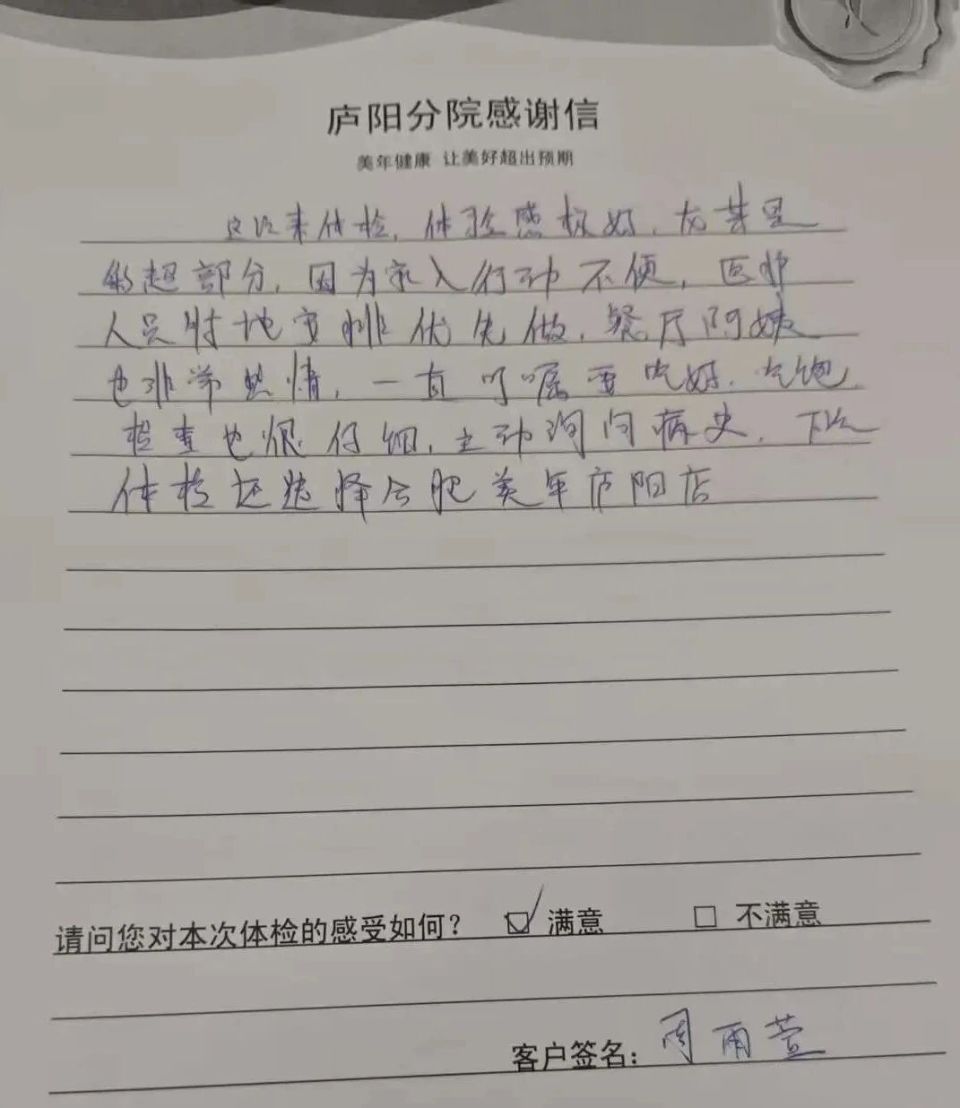 庐阳分院感谢信
美年健康 让美好超出预期
这次来体检，体验感极好，尤其是
彩超部分，因为家人行动不便，医护
人员特地安排优先做，餐厅阿姨
也非常热情，一直叮嘱要吃好，吃饱，
检查也很仔细，主动询问病史，下次
体检还选择合肥美年庐阳店
请问您对本次体检的感受如何？ ☑ 满意 □ 不满意
客户签名：周雨萱